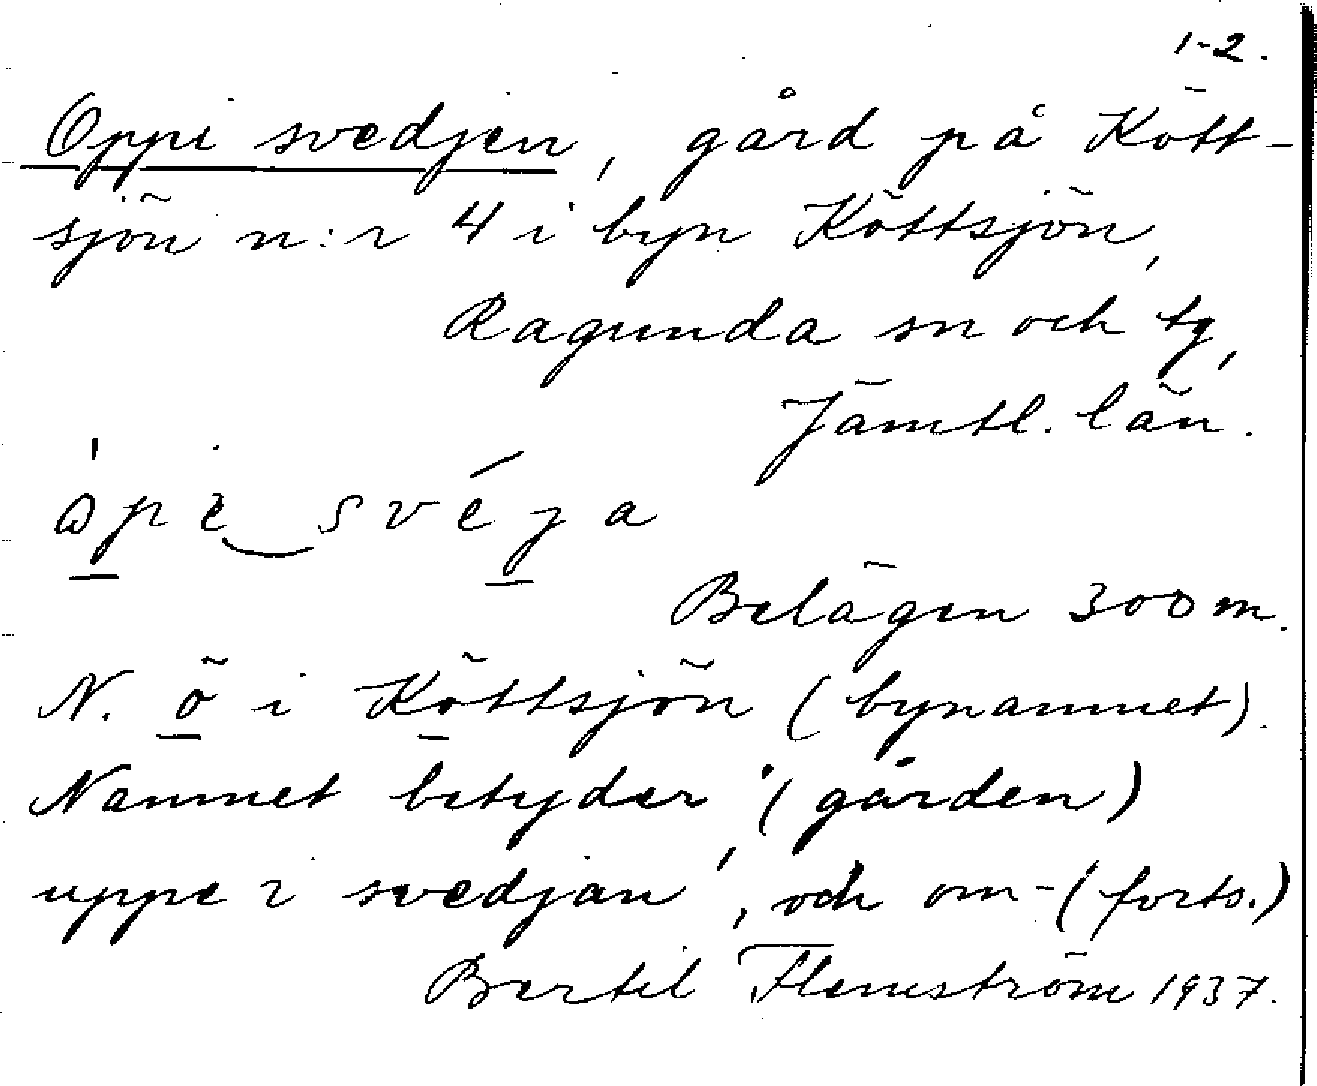 1-2.
Oppi svedjen, gård på Kött-
sjön n:r 4 i byn Köttsjön,
Ragunda sn och tg,
Jämtl. län.
òpe svéja
Belägen 300 m.
N. ö i Köttsjön (bynamnet).
Namnet betyder '(gården)
uppe i svedjan', och om- (forts.)
Bertil Flemström 1937.